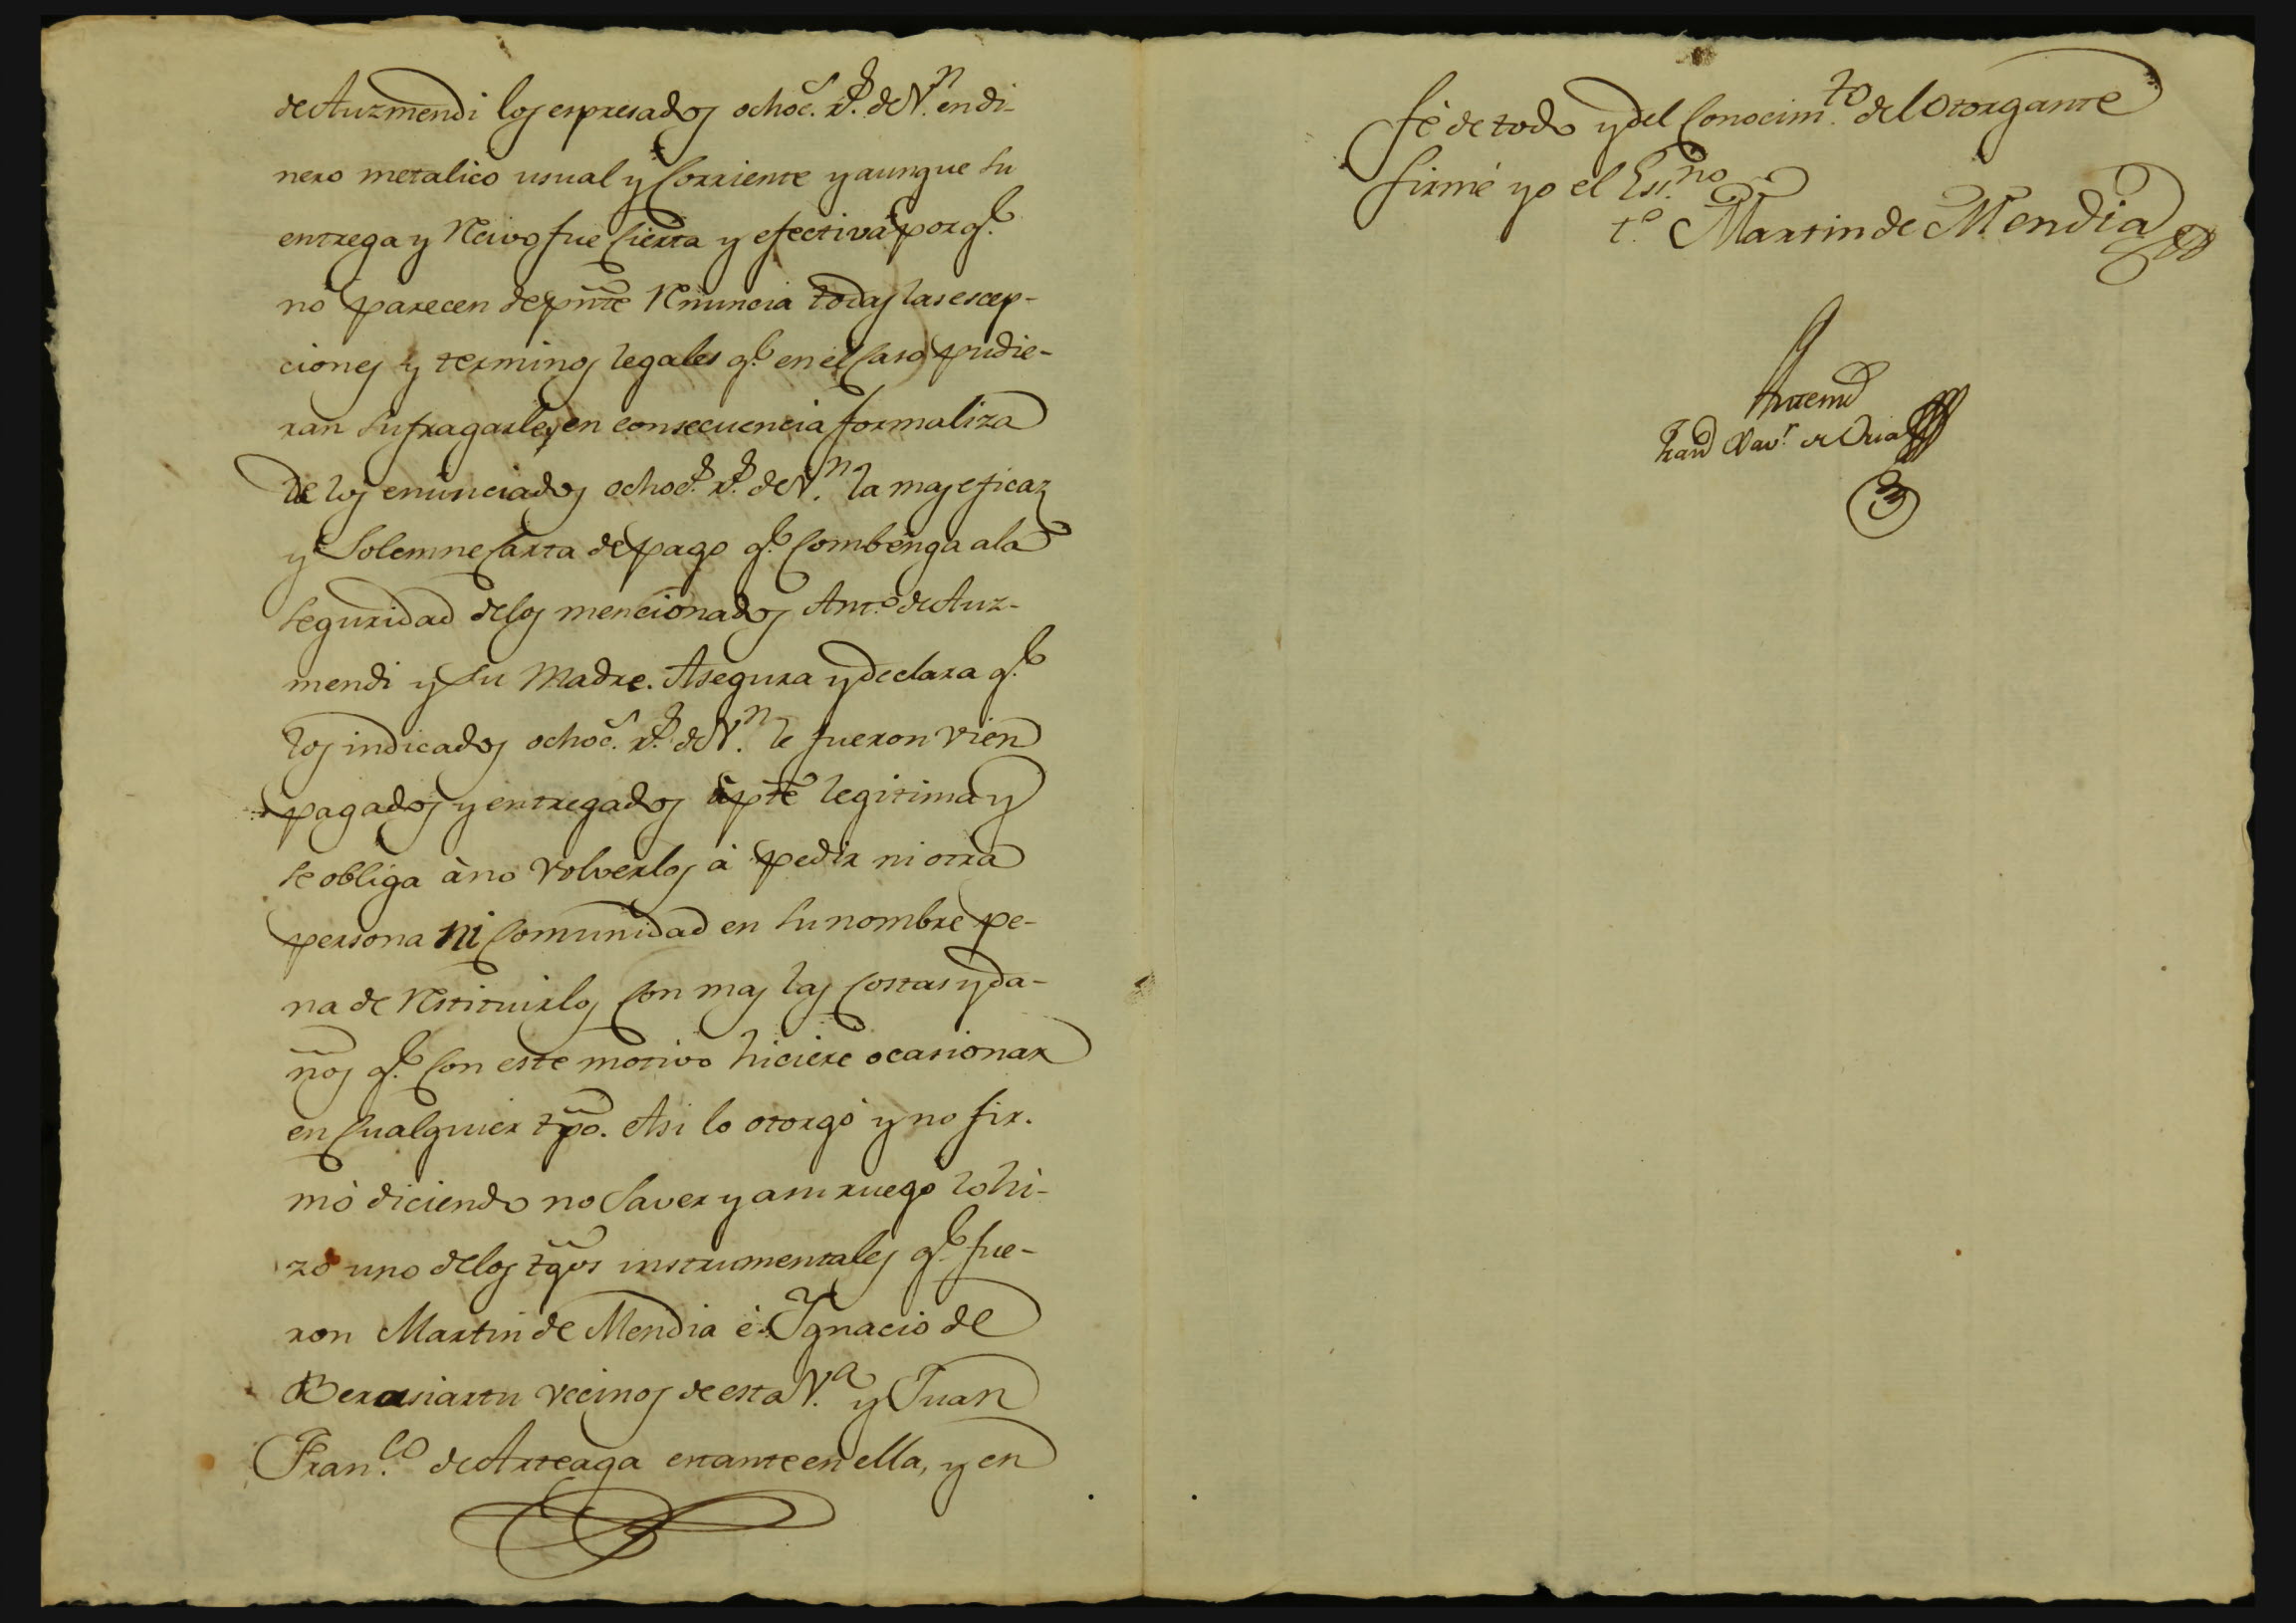 de Auzmendi los espresados ochoc.s r.s de V.n en di-
nero metalico usual y Corriente y aunque su
entrega y Recivo fue Cierta y efectiva por q.e
no parecen de pnte Renuncia todas las escep-
ciones y terminos legales q.e en el Caso pudie-
ran sufragarle, y en consecuencia formaliza
de los enunciados ochoc.s r.s de V.n la mas eficaz
y Solemne Carta de pago q.e Combenga a la
seguridad de los mencionados Ant.o de Auz-
mendi y su Madre. Asegura y declara q.e
los indicados ochoc.s r.s de V.n le fueron vien
pagados y entregados à pte legitima y
se obliga à no volverlos à pedir ni otra
persona ni Comunidad en su nombre pe-
na de Restituirlos Con mas las Costas y da-
ños q.e Con este motivo hiciere ocasionar
en Cualquier tpo. Asi lo otorgò y no fir-
mò diciendo no Saver y a su ruego lo hi-
zo uno de los tgos instrumentales q.e fue-
ron Martin de Mendia è Ignacio de
Berasiartu vecinos de esta V.a y Juan
Fran.co de Arteaga estante en ella, y en
fé de todo y del Conocim.to del Otorgante
firmé yo el Ess.no
t.o Martin de Mendia
Antemi